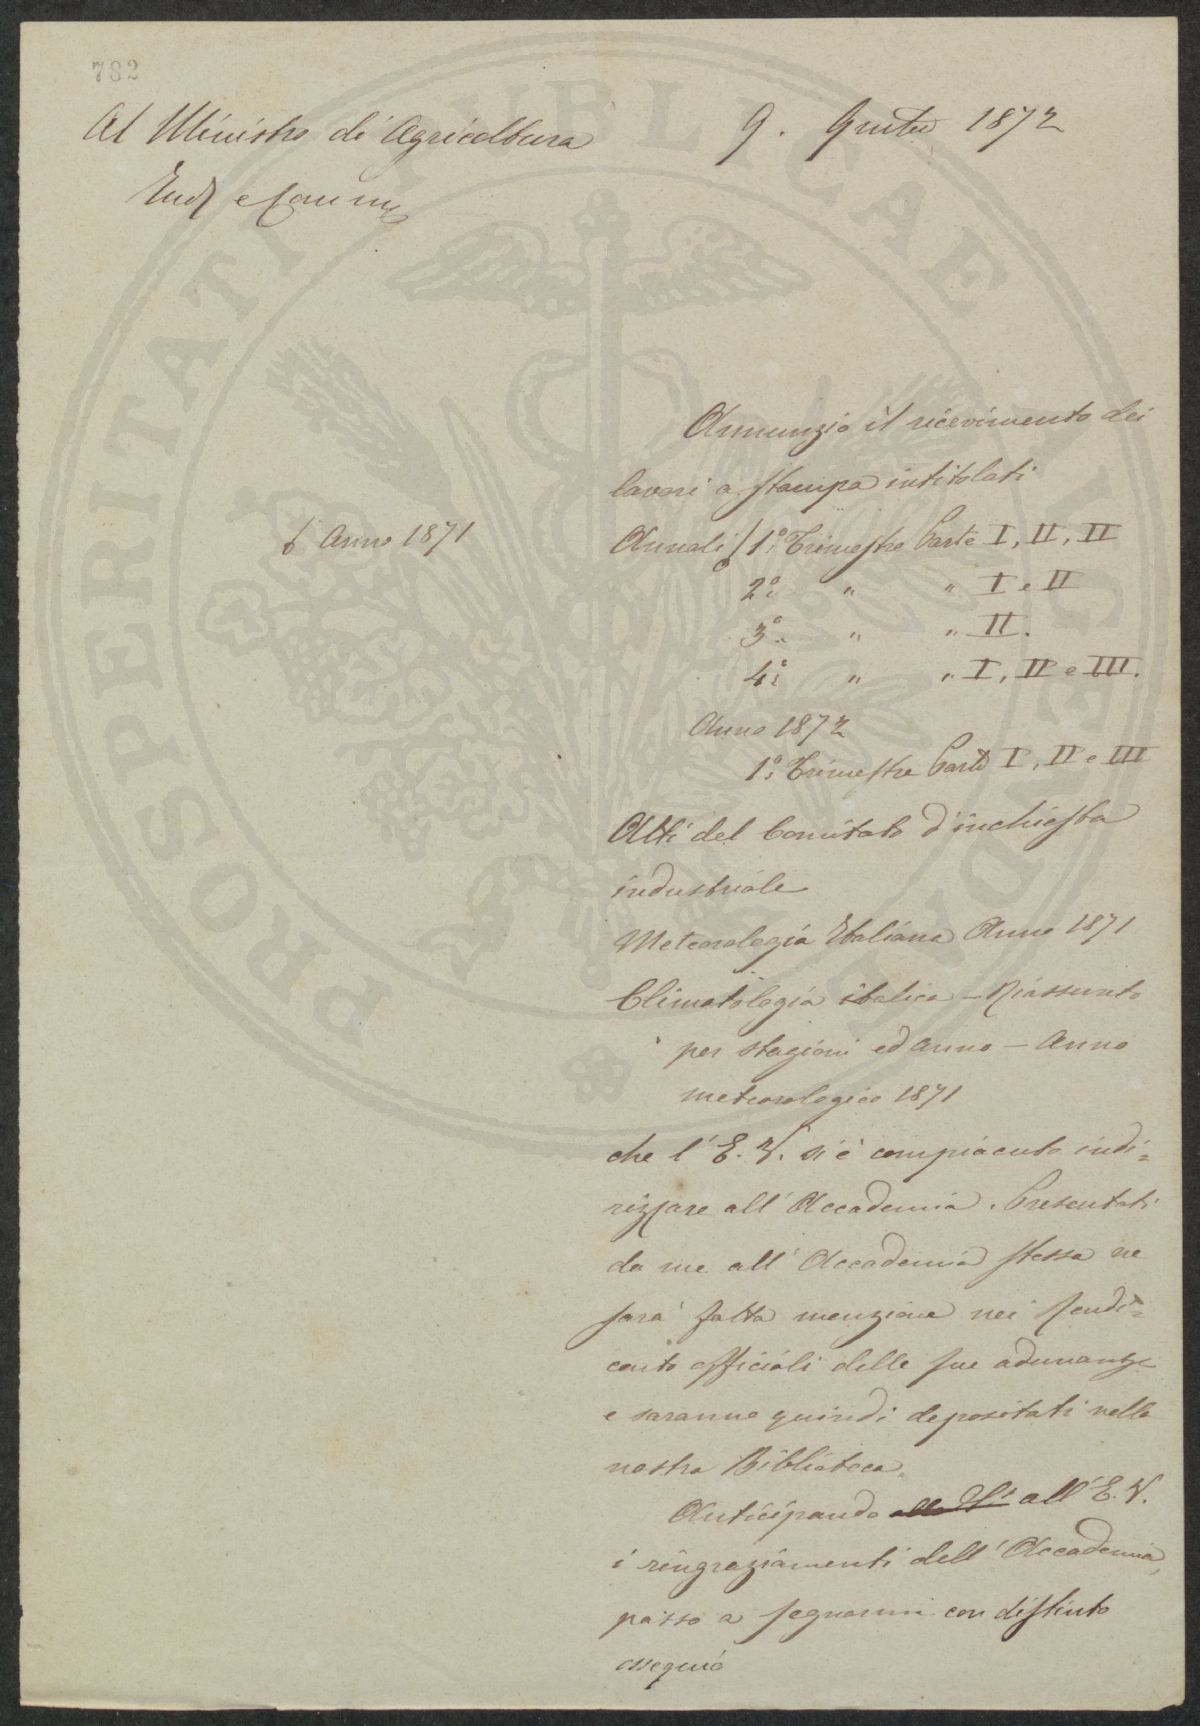 782
Al Ministro di Agricoltura
9. 1872
Ind e Comm
Annunzio il ricevimento dei
lavori a stampa intitolati
Anno 1871
Annali / 1° Trimestre Parte I, II, II
2° " " I e II
3° " " II.
4° " " I, II e III.
Anno 1872
1° Trimestre Parte I, II e III
Atti del Comitato d'inchiesta
industriale
Meteorologia Italiana Anno 1871
Climatologia italica – Riassunto
per stagioni ed anno – Anno
meteorologico 1871
che l'E. V. si è compiaciuto indi=
rizzare all'Accademia. Presentati
da me all'Accademia stessa ne
sarà fatta menzione nei Rendi=
conto officiali delle sue adunanze
e saranno quindi depositati nella
nostra Biblioteca.
Anticipando all'E. V.
i ringraziamenti dell'Accademia,
passo a segnarmi con distinto
ossequio
PROSPERITATI PVBLICAE AVGENDAE